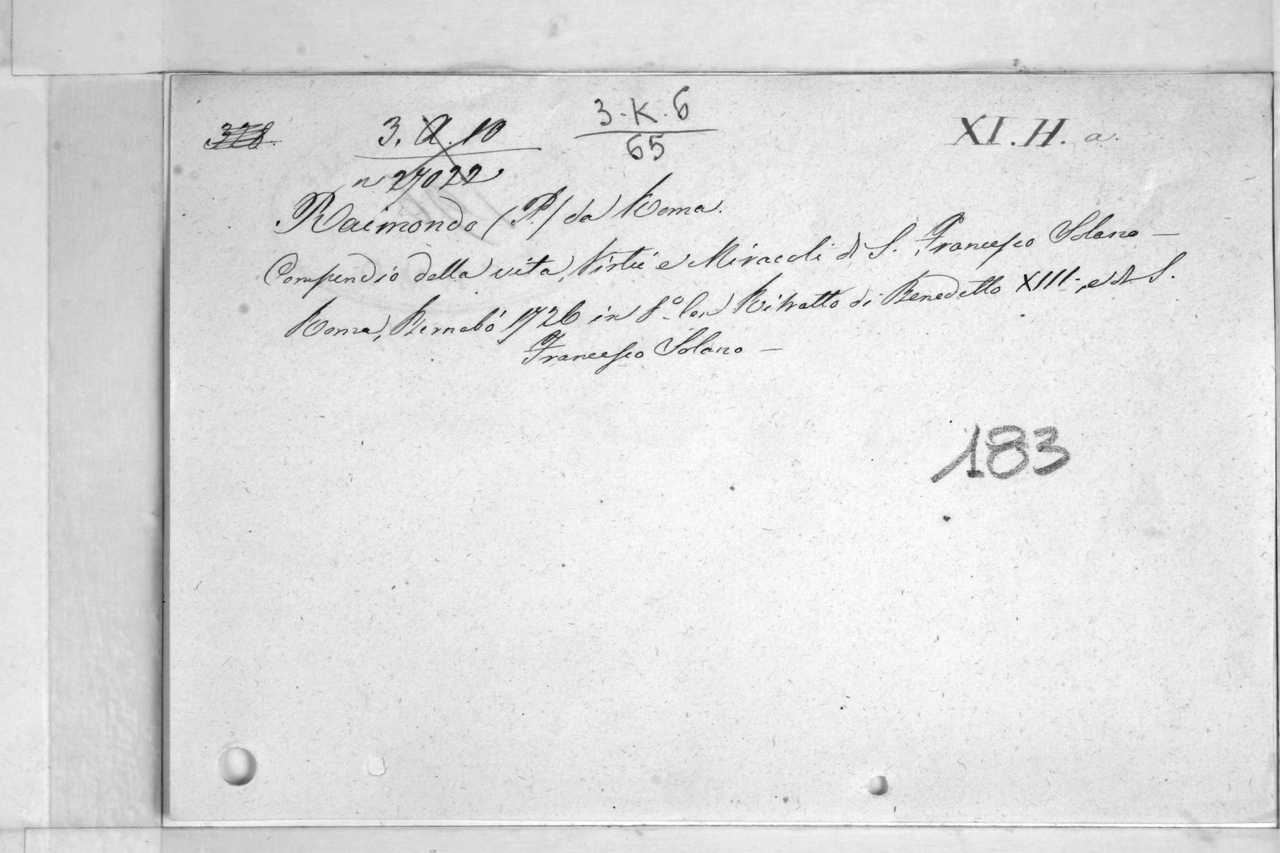 378.
3. A. 10
n 27022
3.K.6
65
XI.H. a.
Raimondo (P.) da Roma.
Compendio della vita, Virtù e Miracoli di S. Francesco Solano —
Roma, Bernabò 1726 in 8.º Con Ritratto di Benedetto XIII. e di S.
Francesco Solano —
183